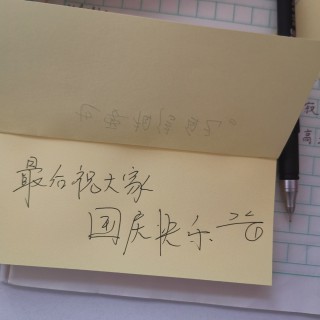 最后祝大家
国庆快乐